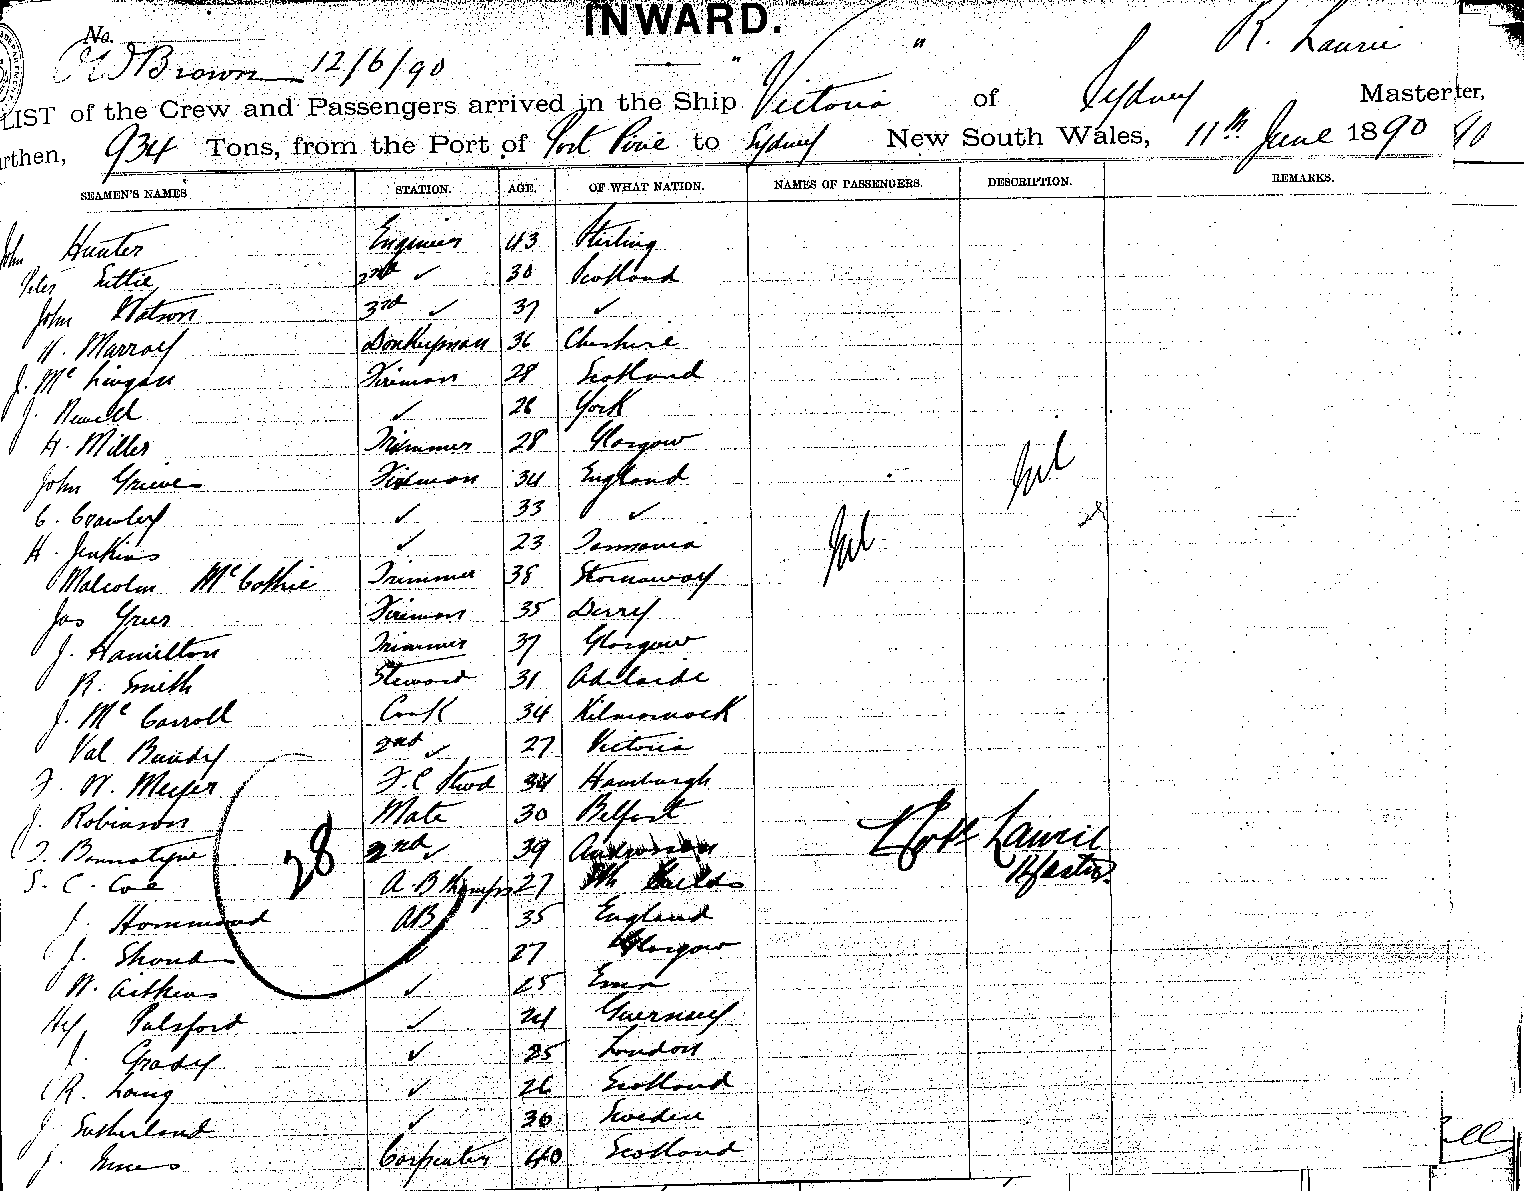 INWARD.
No.
Brown 12/6/90
R. Laurie
LIST of the Crew and Passengers arrived in the Ship " Victoria " of Sydney Master ter,
rthen, 934 Tons, from the Port of Port Pirie to Sydney New South Wales, 11th June 1890 90
SEAMEN'S NAMES STATION. AGE. OF WHAT NATION. NAMES OF PASSENGERS. DESCRIPTION. REMARKS.
John Hunter Engineer 43 Stirling
Peter 2nd ✓ 30 Scotland
John Watson 3rd ✓ 37 ✓
Murray Donkeyman 36 Cheshire
J. Mc Fireman 28 Scotland
J. Newell ✓ 26 York
H. Miller Trimmer 28 Glasgow
John Grieves Fireman 34 England
C. Crawley ✓ 33 ✓
H. Jenkins ✓ 23
Malcolm McCothie Trimmer 38 Stornaway
Jas Grier Fireman 35 Derry
J. Hamilton Trimmer 37 Glasgow
R. Smith Steward 31 Adelaide
J. McCarroll Cook 34 Kilmarnock
Val Bundy 2nd ✓ 27 Victoria
F. W. Meyer F.C Stwd 34 Hamburgh
J. Robinson Mate 30 Belfast
Bannatyne 2nd ✓ 39
S. C. Coe A B 27
J. Hammond AB 35 England
J. 27 Glasgow
W. Aitkens ✓ 25
Hy Pulsford ✓ 24 Guernsey
J. Grady ✓ 25 London
R. Laing ✓ 26 Scotland
J Sutherland ✓ 30 Sweden
J. Innes Carpenter 40 Scotland
28
Nil
Nil
Robt Laurie
Master